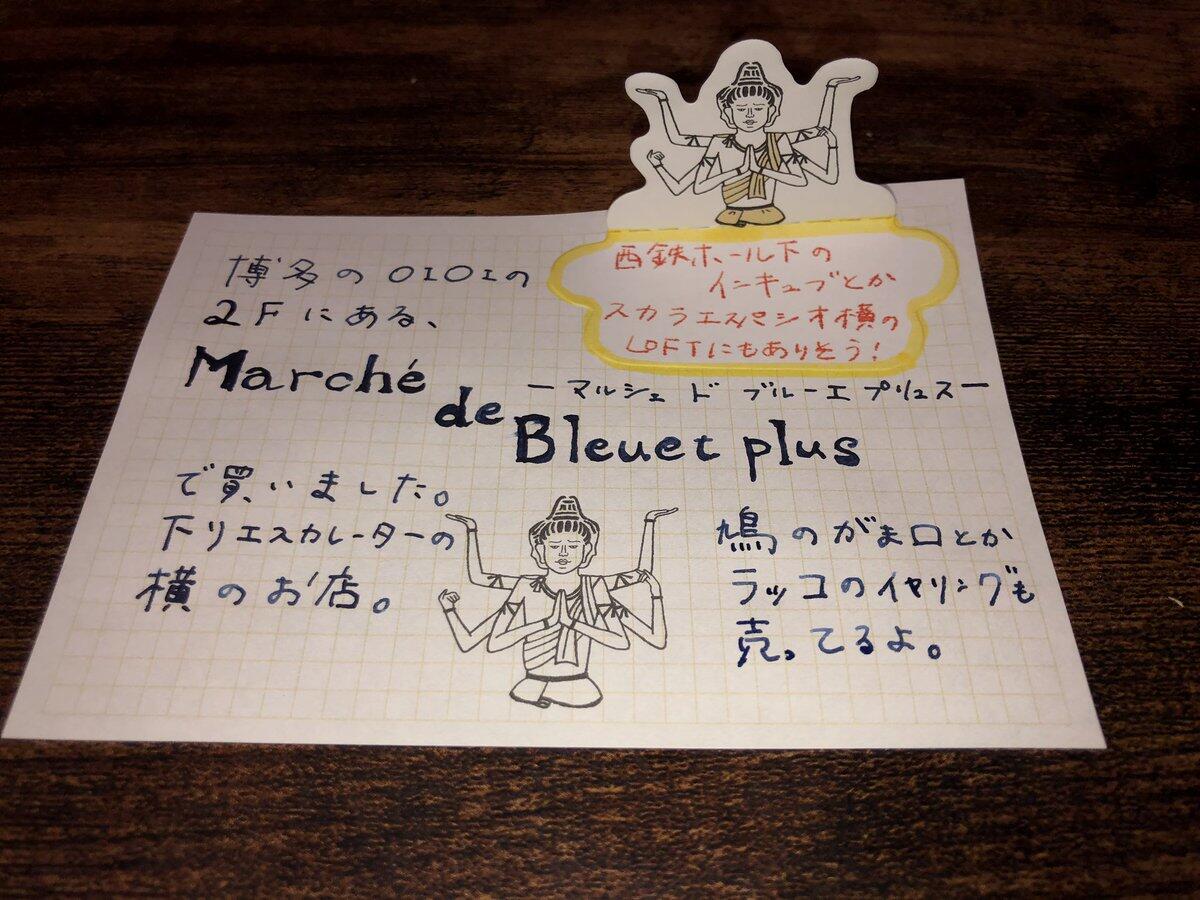 博多のOIOIの
2Fにある、
Marché
de
ーマルシェ ド ブルーエ プリュスー
Bleuet plus
で買いました。
下りエスカレーターの
横のお店。
鳩のがま口とか
ラッコのイヤリングも
売ってるよ。
西鉄ホール下の
インキュブとか
スカラエスパシオ横の
LOFTにもありそう!